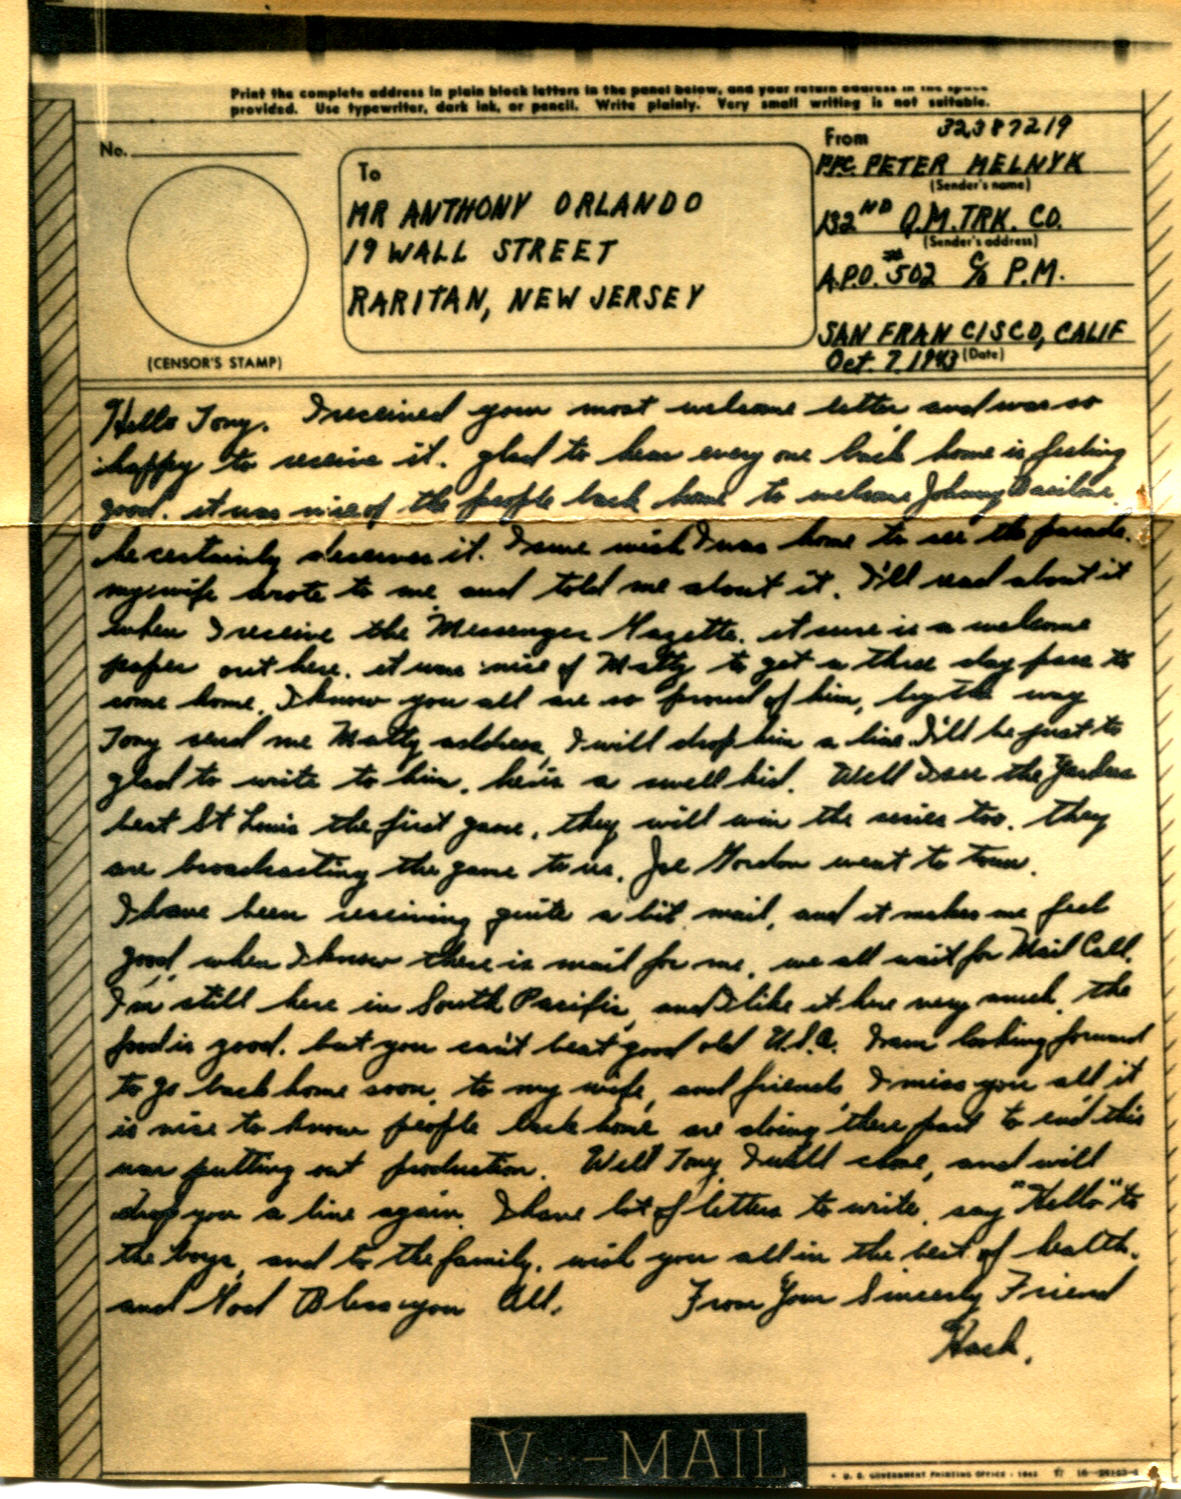 Print the complete address in plain block letters in the panel below, and your return address in the space
provided. Use typewriter, dark ink, or pencil. Write plainly. Very small writing is not suitable.
No.
(CENSOR'S STAMP)
To
MR ANTHONY ORLANDO
19 WALL STREET
RARITAN, NEW JERSEY
From
32387219
PFC. PETER MELNYK
(Sender's name)
132ND Q.M. TRK. CO.
(Sender's address)
A.P.O. #502 c/o P.M.
SAN FRANCISCO, CALIF
Oct. 7, 1943 (Date)
Hello Tony. I received your most welcome letter and was so
happy to receive it. glad to hear every one back home is feeling
good. it was nice of the people back home to welcome Johnny Basilone
he certainly deserves it. I sure wish I was home to see the parade.
my wife wrote to me and told me about it. I'll read about it
when I receive the Messenger Gazette. it sure is a welcome
paper out here. it was nice of Matty to get a three day pass to
come home. I know you all are so proud of him, by the way
Tony send me Matty address, I will drop him a line I'll be just to
glad to write to him. he is a swell kid. Well I see the Yankees
beat St Louis the first game, they will win the series too. they
are broadcasting the game to us. Joe Gordon went to town.
I have been receiving quite a bit mail, and it makes me feel
good, when I know there is mail for me, we all wait for Mail Call.
I'm still here in South Pacific, and I like it here very much. the
food is good. but you can't beat good old U.S.A. I am looking forward
to go back home soon, to my wife, and friends, I miss you all it
is nice to know people back home are doing there part to end this
war putting out production. Well Tony I will close, and will
drop you a line again. I have lot of letters to write. say "Hello" to
the boys, and to the family. wish you all in the best of health.
and God Bless you All. From Your Sincerely Friend
V···—MAIL
U. S. GOVERNMENT PRINTING OFFICE